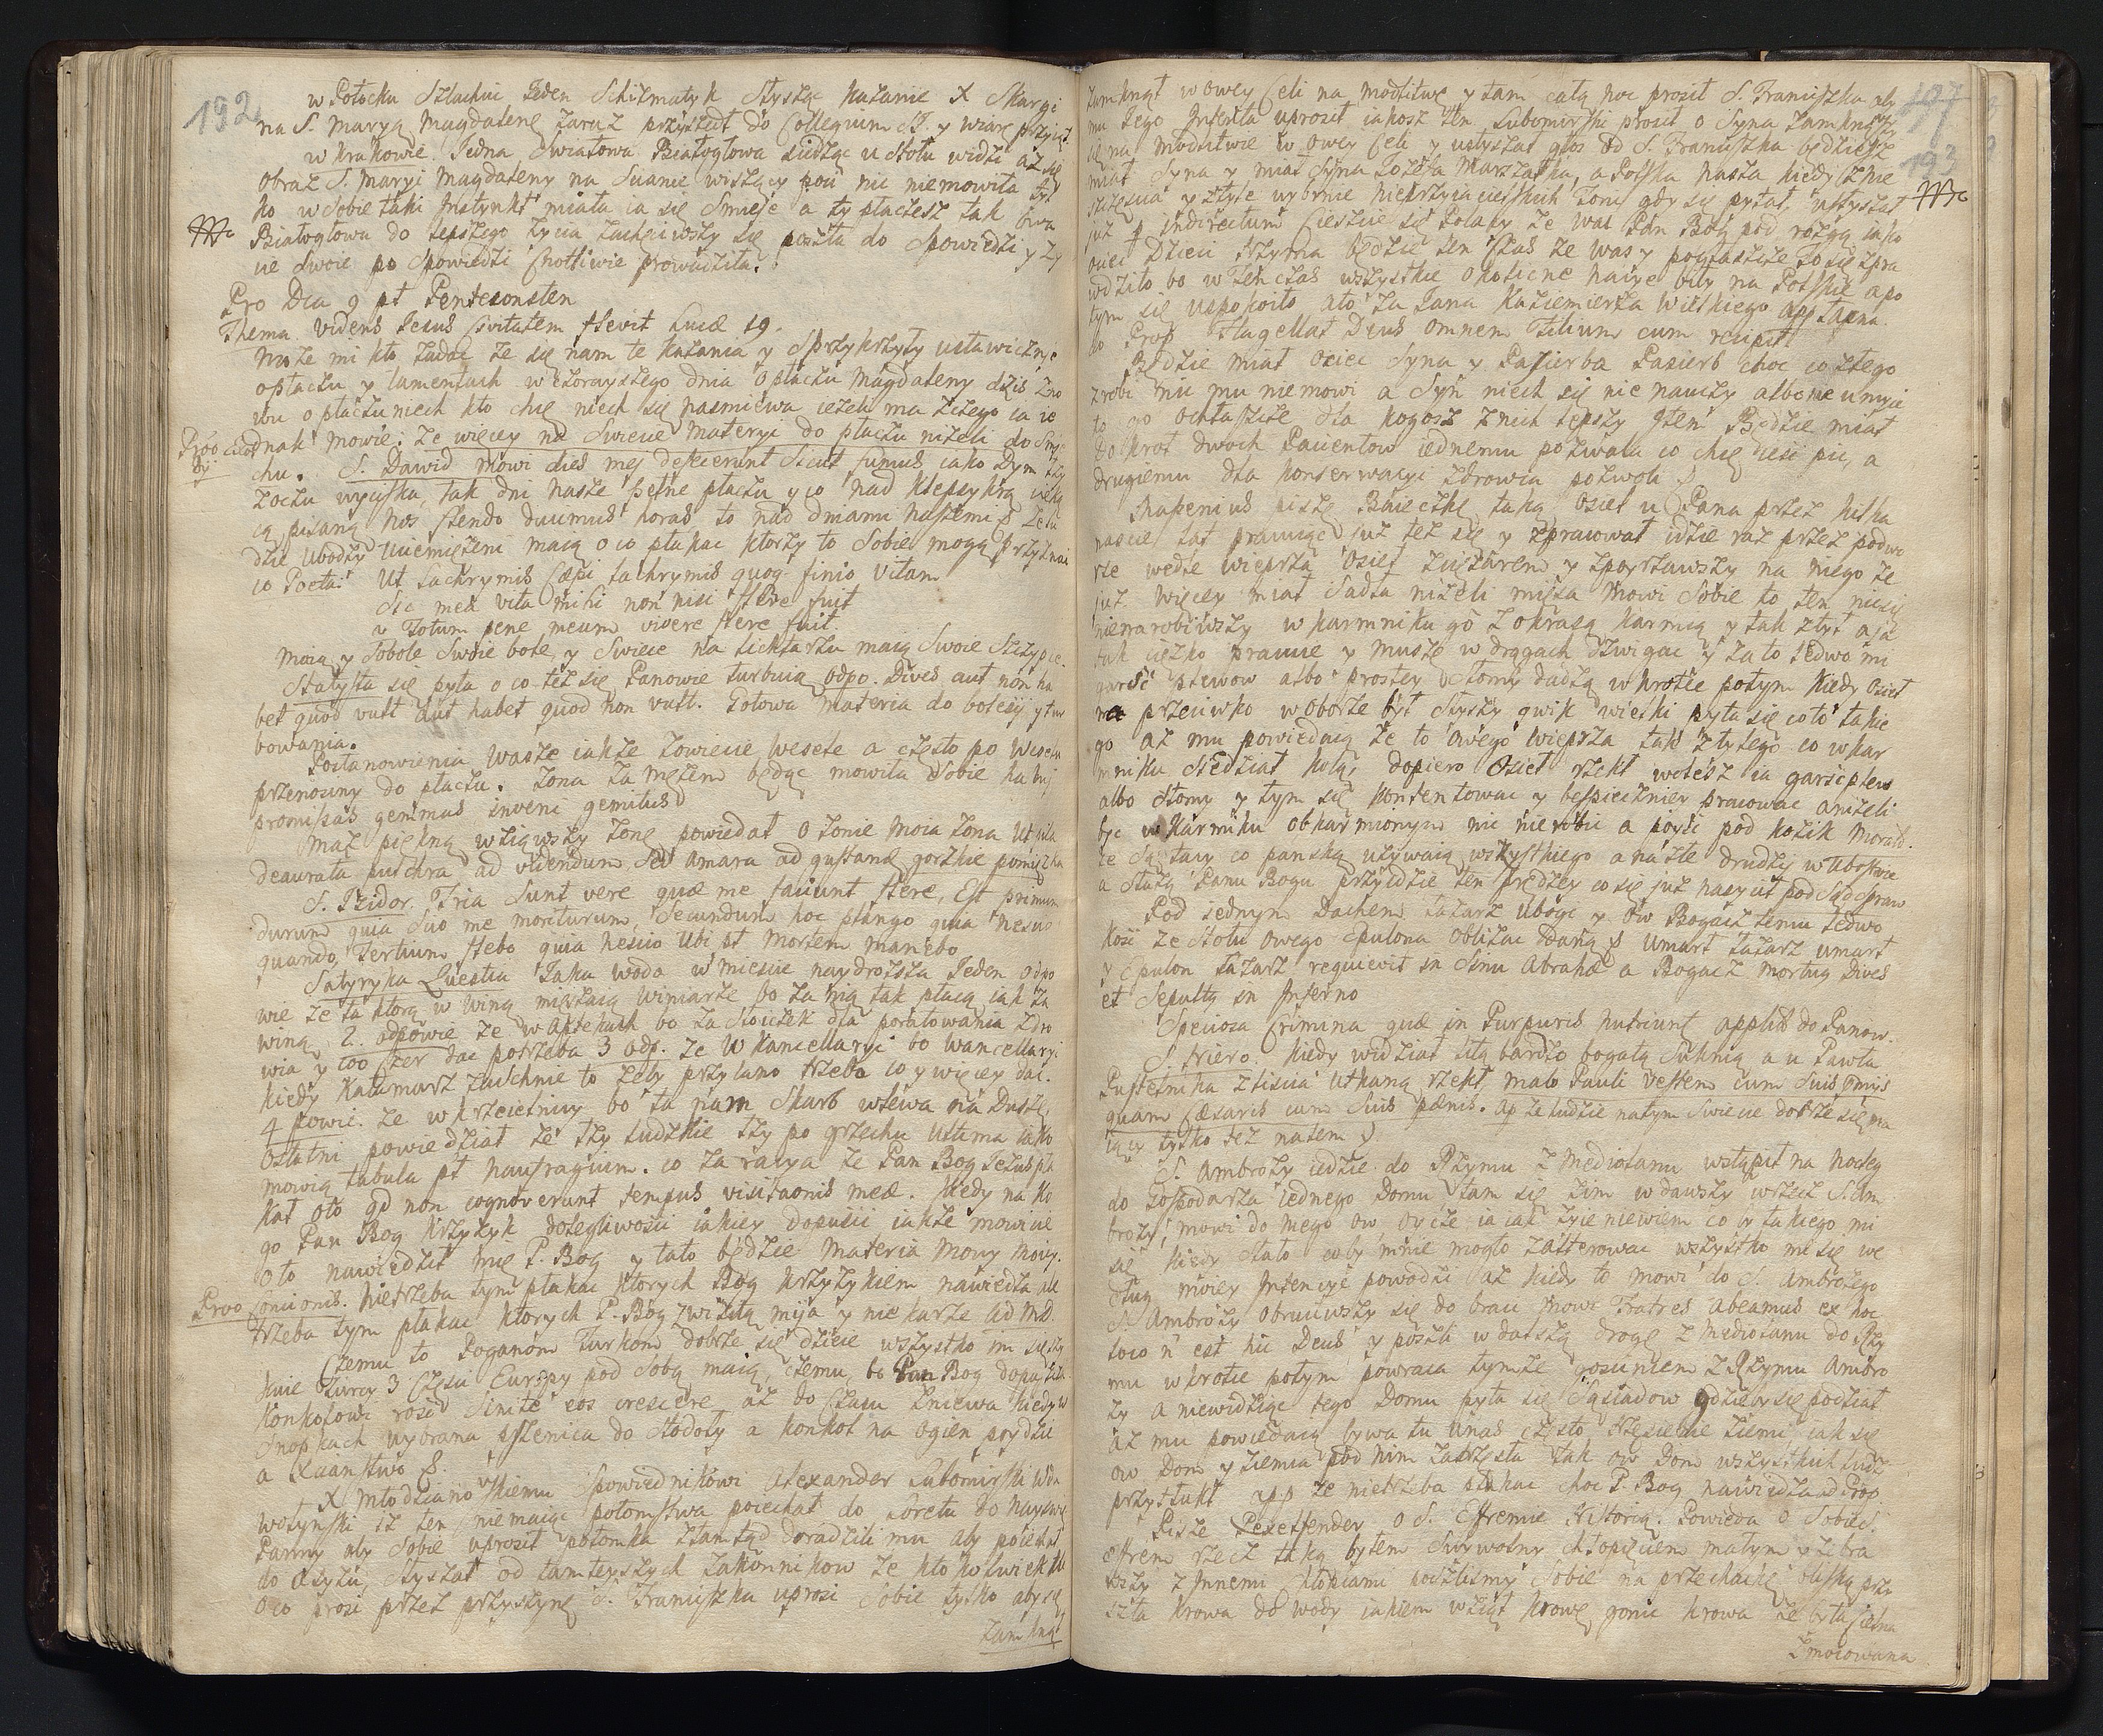 192
w Połocku Szlachcic Jeden Schizmatyk Słysząc kazanie X Skargi
na S. Maryą Magdalenę zaraz przyszedł do Collegium SJ. y wiarę przyiął
w krakowie Jedna Swiatowa Białogłowa siedząc u stołu widzi aż się
obraz S. Maryi Magdaleny na scianie wiszący poci nic niemowiła tyl
ko w sobie taki Instynkt miała ia się smieję a ty płaczesz tak owa
Białogłowa do lepszego życia zachęciwszy się poszła do Spowiedzi y ży
cie swoie po spowiedzi cnotliwie prowadziła.
Pro Dca 9 pt Pentecosten
Thema videns Jesus Civitatem flevit Lucæ 19.
Może mi kto zadać że się nam te kazania y sprzykrzyły ustawicznie
o płaczu y lamentach wczorayszego dnia o płaczu Magdaleny dziś zno
wu o płaczu niech kto chce niech się nasmiewa ieżeli ma z czego ia ie
dnak mowie: że więcey na swiecie materyi do płaczu niżeli do smie
chu. S. Dawid mowi dies mej defecerunt sicut fumus iako Dym łzy
z oczu wyciska, tak dni nasze pełne płaczu y co nad klepsydrą
cą pisaną nos flendo ducimus horas to nad dniami naszemi
dzie ubodzy uciemiężeni maią o co płakac ktorzy to sobie mogą przyznac
co Poeta: Ut Lachrymis Cœpi lachrymis quoq finio vitam
Sic mea vita mihi non nisi flere fuit
v Totum pene meum vivere flere fuit.
Maią y Sobole swoie bole, y swiece na lichtarzu maią swoie szczypce.
Statysta się pyta o co też się Panowie turbuią odpo. Dives aut non ha
bet quod vult aut habet quod non vult. Gotowa materia do bolesci y tur
bowania.
Postanowienia wasze iakże zowiecie wesele a często po weselu
przenosiny do płaczu. Żona za mężem będąc mowiła sobie
promissas geminas inveni gemitus
Mąż piękną wziąwszy żonę powiedał o żonie moia żona ut pila
deaurata pulchra ad videndum sed amara ad gustand gorzkie pomysz
S. Izidor. Tria sunt vere quæ me faciunt flere, Est primum
durum quia scio me moriturum, Secundum hoc plango quia nescio
quando, Tertium flebo quia nescio ubi pt mortem manebo
Satyryka Questia Jaka woda w miescie naydroższa Jeden odpo
wie że ta ktorą w wina mięszaią winiarze bo za nią tak płacą iak za
wina, 2. odpowie że w aptekach bo za słoiczek dla poratowania zdro
wia y 100 czer dac potrzeba 3 odp. że w kancellaryi bo w kancellaryi
kiedy kałamarz zaschnie to żeby przylano trzeba co y więcey dac.
4 powie. że w krzcielnicy bo ta nam skarb wlewa na duszę,
ostatni powiedział że łzy ludzkie łzy po grzechu ultima iako
mowią tabula pt naufragium. co za racya że Pan Bog Jezus pła
kał oto qd non cognoverunt tempus visitaonis meæ. Kiedy na ko
go Pan Bog krzyżyk dolegliwosci iakiey dopusci iakże mowicie
oto nawiedził mię P. Bog y tato będzie materia mowy moiey.
Prvo conionis. Nietrzeba tym płakac ktorych Bog krzyżykiem nawiedza ale
trzeba tym płakac ktorych P. Bog z wizitą mija y nie karze Ad MD.
Czemu to Poganom Turkom dobrze się dzieie wszystko im się
Turcy 3 Częsci Europy pod sobą maią, czemu, bo Pan Bog dopuszcza
Konkolowi rosc Sinite eos crescere, aż do czasu żniwa kiedy w
snopkach wybrana pszenica do stodoły a konkol na ogien poydzie
a
X Młodzianowskiemu Spowiednikowi Alexander Lubomirski Wda
iż ten niemaiąc potomstwa poiechał do Loretu do Nayswię
Panny aby sobie uprosił potomka ztamtąd doradzili mu aby poiechał
do Asyżu, słyszał od tamteyszych zakonnikow że ktokolwiek
o co prosi przez przyczynę S. Franciszka uprosi sobie tylko aby się
zamknął
193
zamknął w owey Celi na modlitwę y tam całą noc prosił S. Franciszka aby
mu tego Infenta uprosił iakosz ten Lubomirski prosił o syna zamknąwszy
się na modlitwie w owey Celi y usłyszał głos od S. Franciszka będziesz
miał syna y miał syna Jozefa Marszałka, a Polska nasza kiedy iżnie
szczęscia y z tyle wybrnie nieprzyiacielskich Toni gdy się pytał, usłyszał
już indirectum Cieszcie się Polacy że was Pan Bog pod rozgą iako
ociec Dzieci trzyma będzie ten czas że was y pogłaszcze to się spra
wdziło bo w ten czas wszystkie okoliczne nacye były na Polskie a po
tym się uspokoiło a to za Jana Kazimierza wielkiego appl.
do Prop Flagellat Deus omnem filium cum recipit
Będzie miał ociec syna y Pasierba Pasierb choc co złego
zrobi nic mu niemowi a syn niech się nie nauczy albo nie umie
to go ochłaszcze dla kogosz z nich lepszy Jten Będzie miał
doktor dwoch Pacientow iednemu pozwala co chce iesc pic, a
drugiemu dla konserwacyi zdrowia pozwoli
Masenius pisze Baieczkę taką Osieł u Pana przez kilka
nascie lat pracuiąc już też się y spracował idzie raz przez podwo
rze wedle wieprza Osieł z ciężarem y spoyrzawszy na niego że
już więcey miał sadła niżeli mięsa Mowi sobie to ten nic
nienarobiwszy w karmniku go z okrasą karmią y tak ztył a ja
tak ciężko pracuie y muszę w drągach dzwigac y za to ledwo mi
garsc plewow albo prostey słomy dadzą w krotce potym kiedy osieł
na przeciwko w oborze był słyszy kwik wielki pyta się co to takie
go aż mu powiedaią że to owego wieprza tak ztyłego co w kar
mniku siedział kolą, dopiero Osieł rzekł wolesz ia garsc plew
albo słomy y tym się kontentowac y bespieczniey pracowac aniżeli
byc w karmiku obkarmionym nic nie robic a poysc pod kozik Morad.
że są tacy co panską używaią wszystkiego a nasze drudzy w ubostwie
a służą Panu Bogu przyidzie ten prędzey co się już nasycił pod sąd spraw
Pod jednym Dachem Łazarz ubogi y ow Bogacz temu ledwo
kosc ze stołu owego Epulona oblizac daną umarł Łazarz umarł
y Epulon Łazarz requievit in sinu Abrahæ a Bogacz mortuq Dives
et sepultq in Inferno
Speciosa Crimina quæ in Purpuris nutriunt applis do Panow.
S Hiero. kiedy widział litą bardzo bogatą suknią a u Pawła
Pustelnika z liscia utkaną rzekł, malo Pauli vestem cum suis
quam Cæsaris cum suis pænis. ap że ludzie na tym swiecie dobrze się ma
iący tylko też na tem
S. Ambroży idzie do Rzymu z Mediolanu wstąpił na nocleg
do Gospodarza iednego Domu tam się zim wdawszy w rzecz S. Am
broży, mowi do niego ow oycze ia iak żyie niewiem co by takiego mi
się kiedy stało coby mnie mogło zalterowac wszystko mi się we
dług moiey Intencyi powodzi aż kiedy to mowi do S. Ambrożego
S Ambroży obruciwszy się do braci mowi Fratres abeamus ex hoc
loco n est hic Deus y poszli w dalszą drogę z Mediolanu do Rzy
mu w krotce potym powraca tymże goscincem z Rzymu Ambro
ży a niewidząc tego Domu pyta się Sąsiadow gdzieby się podział
aż mu powiedaią bywa tu u nas często trzęsienie ziemi iak się
ow Dom y ziemia pod nim zatrzęsła tak ow Dom wszystkich ludz
przytłukł app że nietrzeba płakac choc P. Bog nawiedza ad Prop
Pisze Pexelfender o S. Effremie Historią. Powieda o sobie S.
Effrem rzecz taką byłem swywolny chłopcem małym y zebra
wszy z Innemi chłopiami poszlismy sobie na przechackę blisko przy
szła krowa do wody iakiem wziął krowę gonic krowa że była cielna
Zmocowana